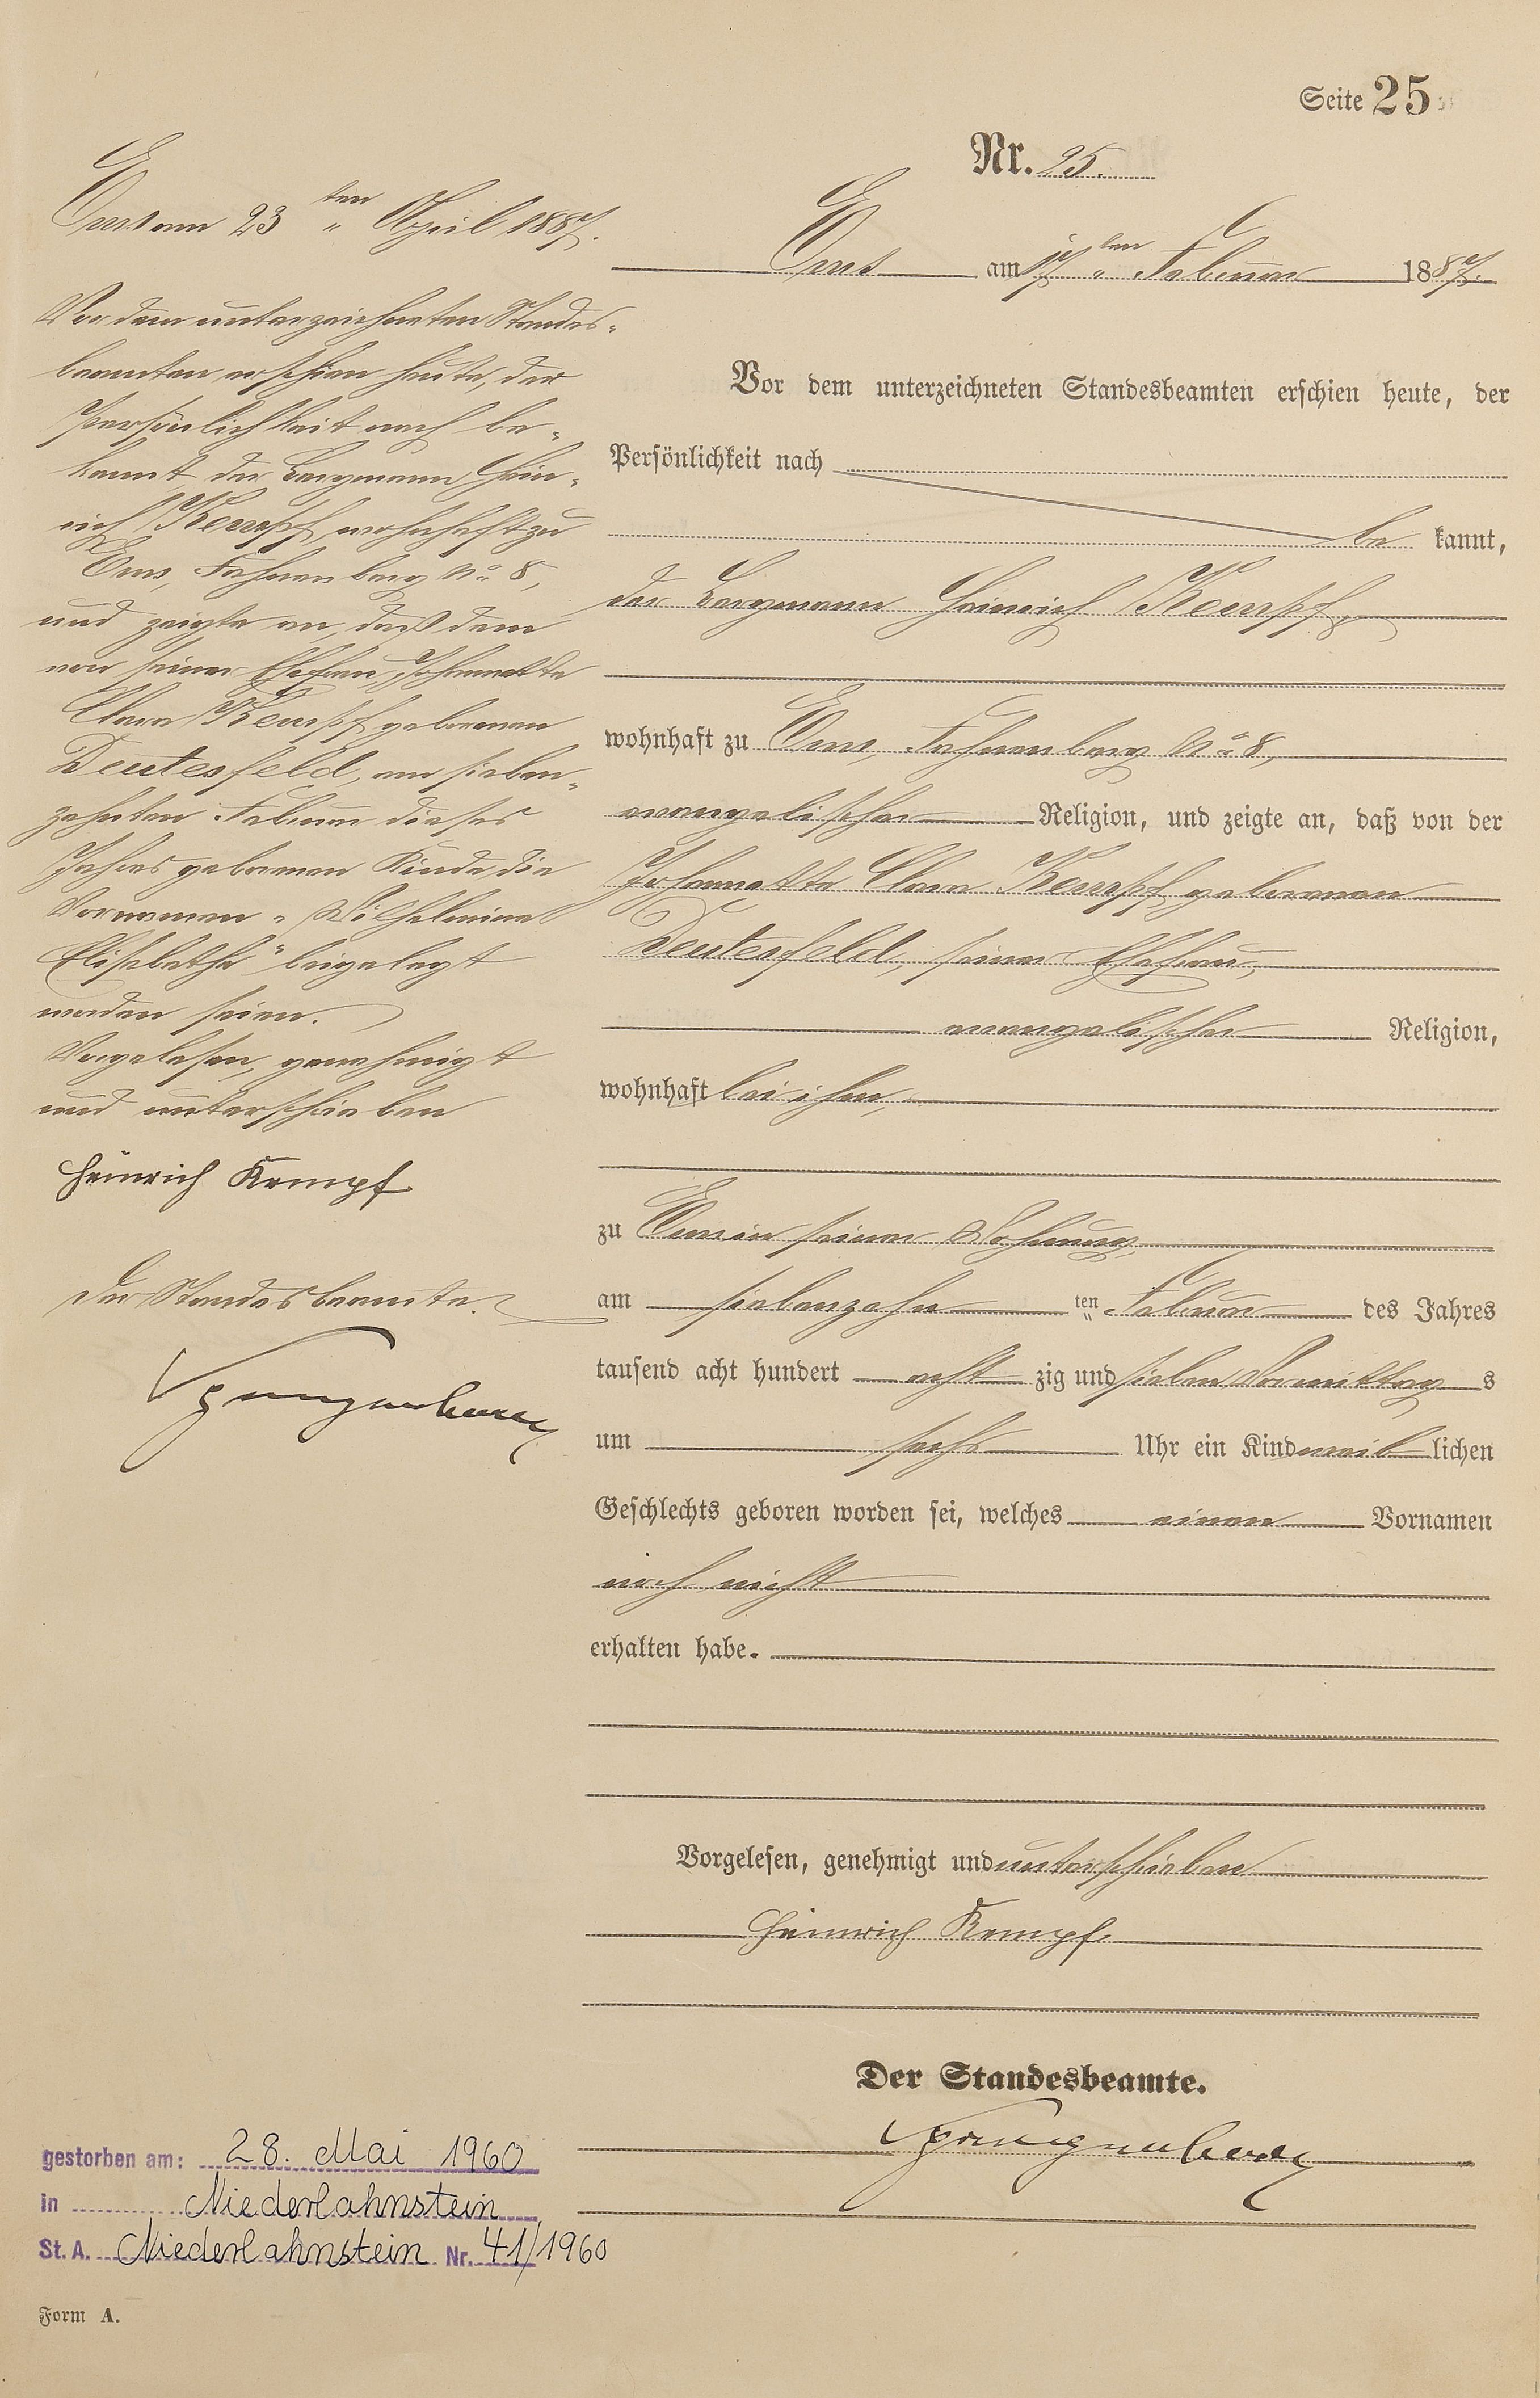 Seite 25
Nr. 25.
Ems am 17ten Februar 1887.
Vor dem unterzeichneten Standesbeamten erschien heute, der
Persönlichkeit nach
be kannt,
der Bergmann Heinrich Kempf,
wohnhaft zu Ems, Fahnenberg No 8,
evangelischer Religion, und zeigte an, daß von der
Johannette Clara Kempf geborenen
Deutesfeld, seiner Ehefrau,
evangelischer Religion,
wohnhaft bei ihm,
zu Ems in seiner Wohnung,
am siebenzehn ten Februar des Jahres
tausend acht hundert acht zig und sieben Vormittag s
um sechs Uhr ein Kind weib lichen
Geschlechts geboren worden sei, welches einen Vornamen
noch nicht
erhalten habe.
Vorgelesen, genehmigt und unterschrieben
Heinrich Kempf.
Der Standesbeamte.
Ems am 23ten April 1887.
Vor dem unterzeichneten Standes-
beamten erschien heute, der
Persönlichkeit nach be-
kannt, der Bergmann Hein-
rich Kempf, wohnhaft zu
Ems, Fahnenberg No 8,
und zeigte an, daß dem
von seiner Ehefrau, Johannette
Clara Kempf geborenen
Deutesfeld, am sieben-
zehnten Februar dieses
Jahres geborenen Kinde die
Vornamen "Wilhelmine
Elisabethe" beigelegt
worden seien.
Vorgelesen, genehmigt
und unterschrieben
Heinrich Kempf
Der Standesbeamte.
gestorben am: 28. Mai 1960
in Niederlahnstein
St. A. Niederlahnstein Nr. 41/1960
Form A.